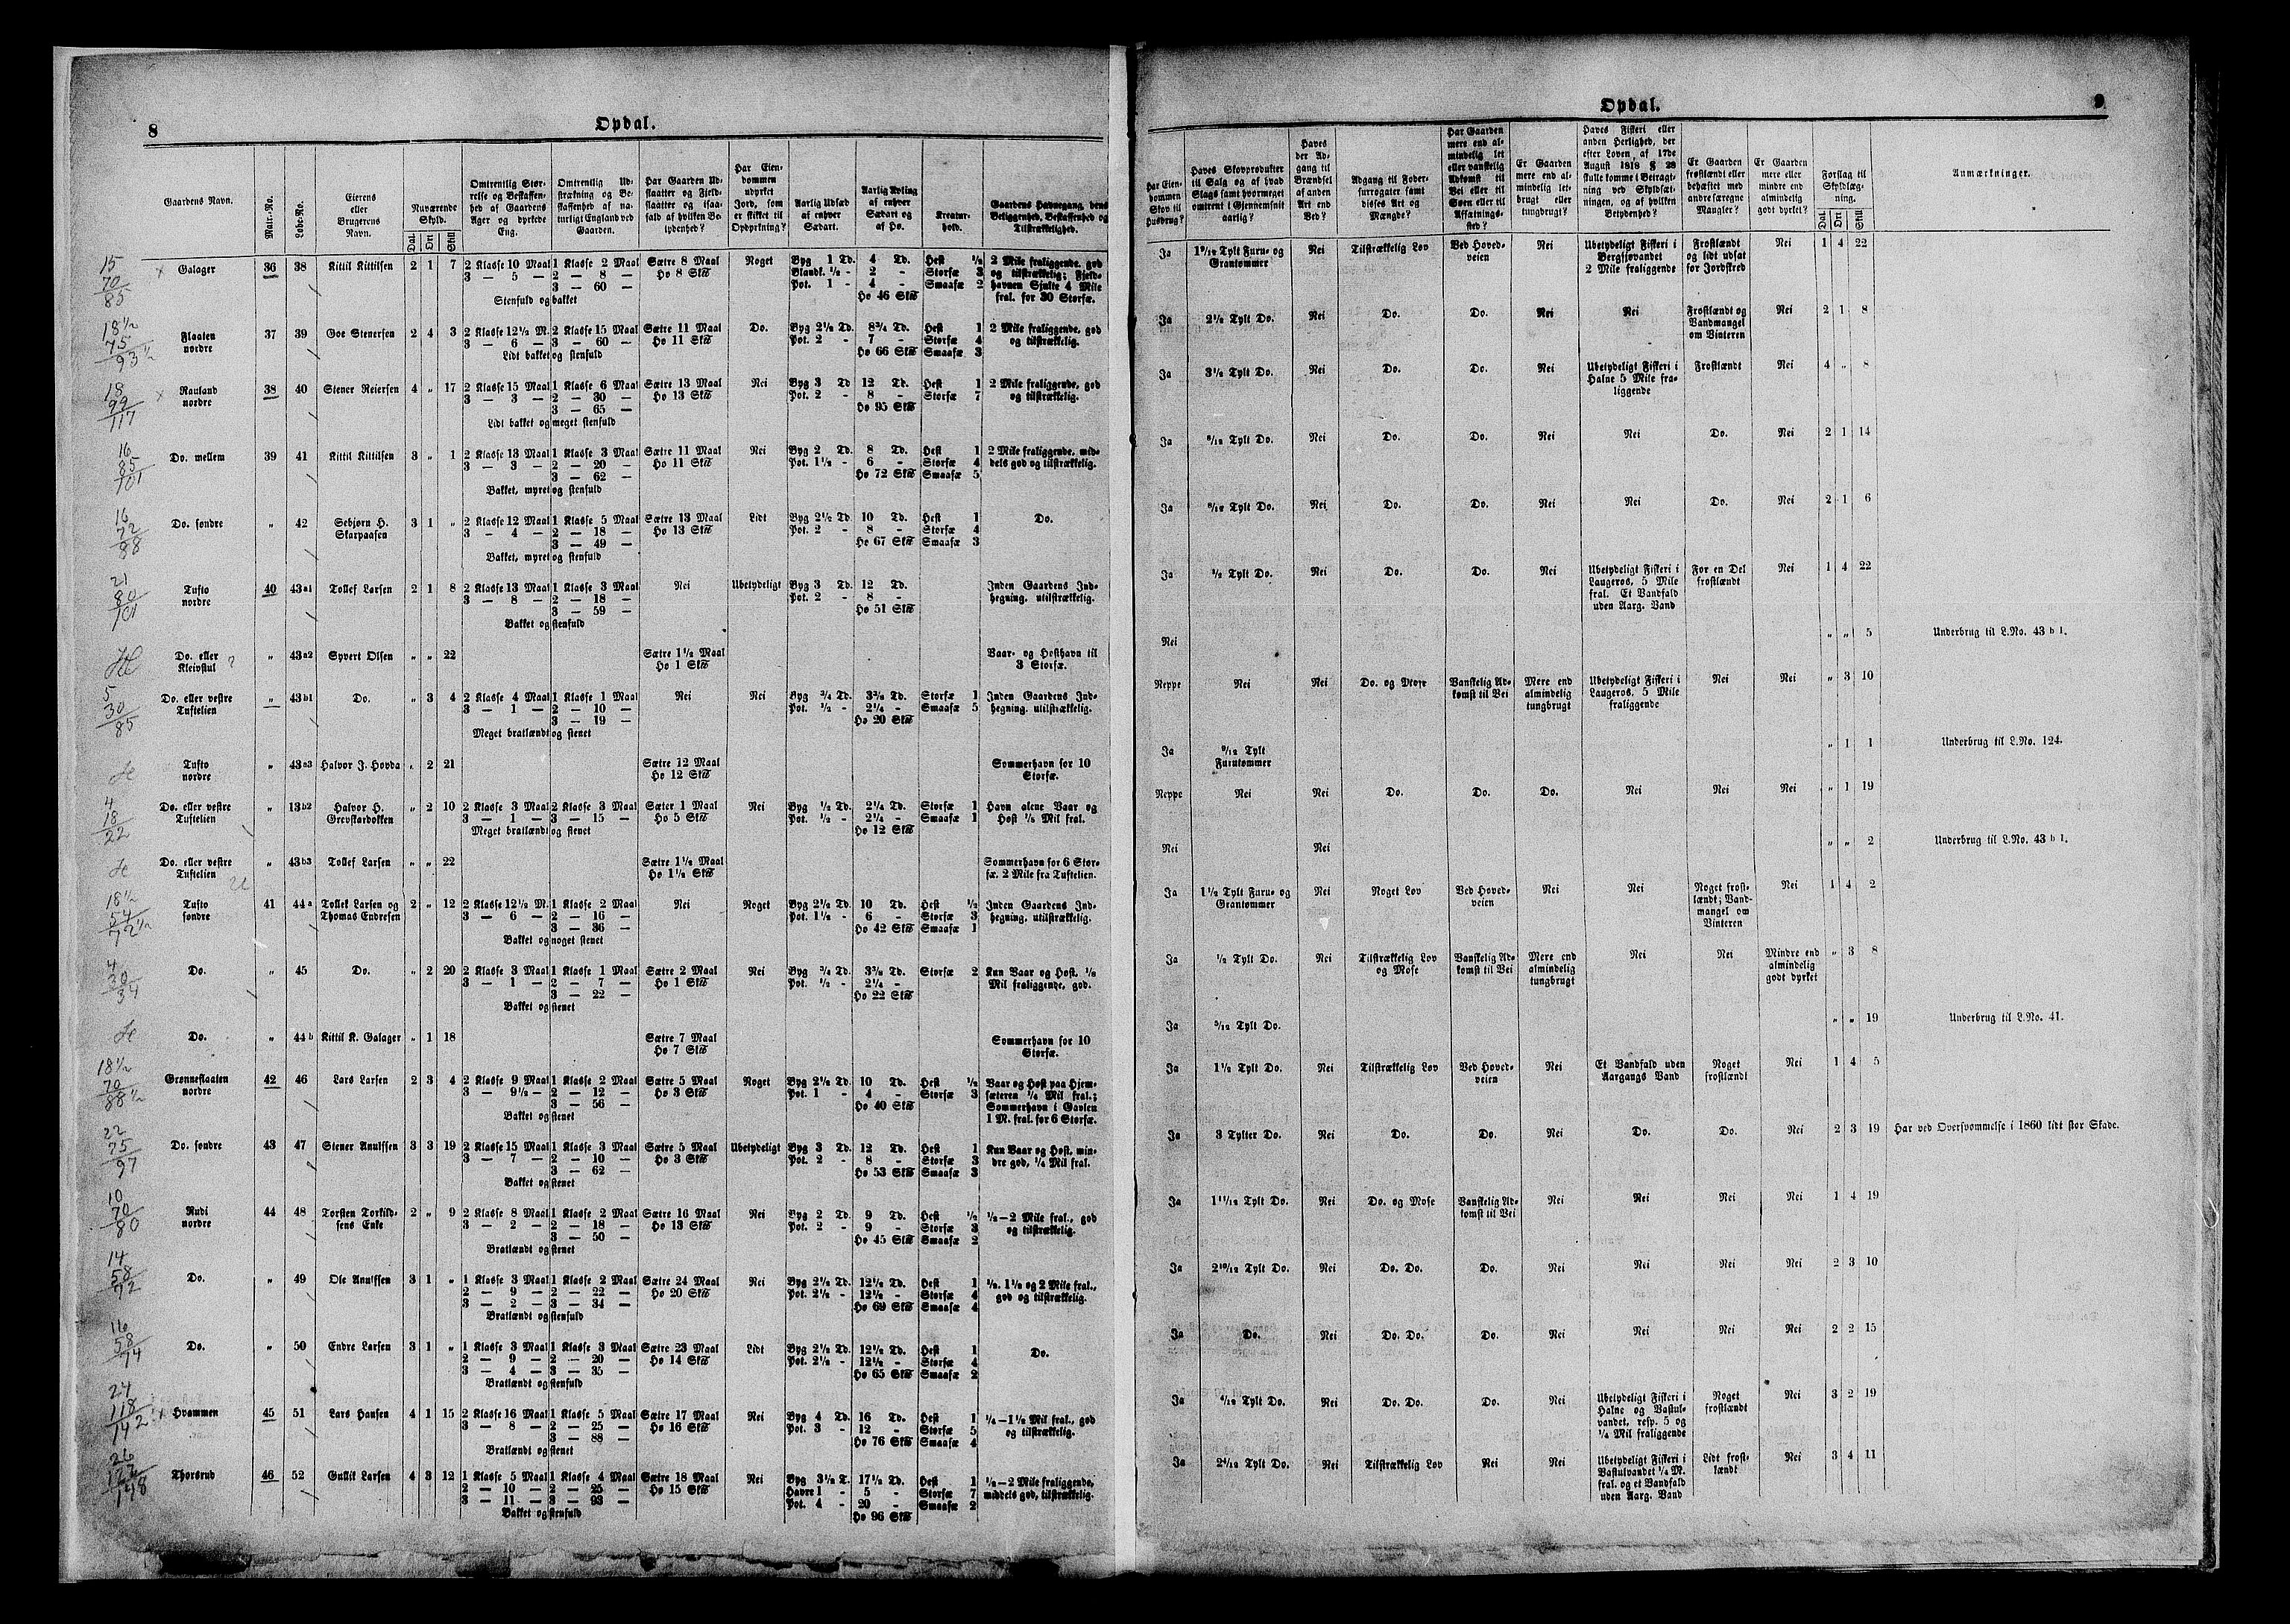 8
Opdal.
Gaardens Navn. | Matr.-No. | Løbe-No. | Eierens eller Brugerens Navn. | Nuværende Skyld. Dal. Ort Skill | Omtrentlig Størrelse og Beskaffenhed af Gaardens Ager og dyrkede Eng. | Omtrentlig Udstrækning og Beskaffenhed af naturligt England ved Gaarden. | Har Gaarden Udslaatter og Fjeldslaatter og isaafald af hvilken Betydenhed? | Har Eiendommen udyrket Jord, som er skikket til Opdyrkning? | Aarlig Udsæd af enhver Sædart. | Aarlig Avling af enhver Sædart og af Hø. | Kreaturhold. | Gaardens Havnegang, dens Beliggenhed, Beskaffenhed og Tilstrækkelighed.
15 70 85 × Galager | 36 | 38 | Kittil Kittilsen | 2 | 1 | 7 | 2 Klasse 10 Maal | 1 Klasse 2 Maal | Sætre 8 Maal | Noget | Byg 1 Td. | 4 Td. | Hest 1/2 | 2 Mile fraliggende, god
3 — 5 — | 2 — 8 — | Hø 8 Sk℔ | Blandk. 1/2 - | 2 - | Storfæ 3 | og tilstrækkelig; Fjeld-
3 — 60 — | Pot. 1 - | 4 - | Smaafæ 2 | havnen Sjulte 4 Mile
Stenfuld og bakket | Hø 46 Sk℔ | fral. for 30 Storfæ.
18 1/2 75 93 1/2 Flaaten | 37 | 39 | Goe Stenersen | 2 | 4 | 3 | 2 Klasse 12 1/2 M. | 2 Klasse 15 Maal | Sætre 11 Maal | Do. | Byg 2 1/2 Td. | 8 3/4 Td. | Hest 1 | 2 Mile fraliggende, god
nordre | 3 — 6 — | 3 — 60 — | Hø 11 Sk℔ | Pot. 2 - | 7 - | Storfæ 4 | og tilstrækkelig.
Lidt bakket og stenfuld | Hø 66 Sk℔ | Smaafæ 3
18 99 117 × Rauland | 38 | 40 | Stener Reiersen | 4 | „ | 17 | 2 Klasse 15 Maal | 1 Klasse 6 Maal | Sætre 13 Maal | Nei | Byg 3 Td | 12 Td. | Hest 1 | 2 Mile fraliggende, god
nordre | 3 — 3 — | 2 — 30 — | Hø 13 Sk℔ | Pot. 2 - | 8 - | Storfæ 7 | og tilstrækkelig.
3 — 65 — | Hø 95 Sk℔
Lidt bakket og meget stenfuld
16 85 101 Do. mellem | 39 | 41 | Kittil Kittilsen | 3 | „ | 1 | 2 Klasse 13 Maal | 1 Klasse 3 Maal | Sætre 11 Maal | Nei | Byg 2 Td. | 8 Td. | Hest 1 | 2 Mile fraliggende, mid-
3 — 3 — | 2 — 20 — | Hø 11 Sk℔ | Pot. 1 1/2 - | 6 - | Storfæ 4 | dels god og tilstrækkelig.
3 — 62 — | Hø 72 Sk℔ | Smaafæ 5
Bakket, myret og stenfuld
16 72 88 Do. søndre | „ | 42 | Sebjørn H. | 3 | 1 | „ | 2 Klasse 12 Maal | 1 Klasse 5 Maal | Sætre 13 Maal | Lidt | Byg 2 1/2 Td. | 10 Td. | Hest 1 | Do.
Skarpaasen | 3 — 4 — | 2 — 18 — | Hø 13 Sk℔ | Pot. 2 - | 8 - | Storfæ 4
3 — 49 — | Hø 67 Sk℔ | Smaafæ 3
Bakket, myret og stenfuld
21 80 101 Tufto | 40 | 43a1 | Tollef Larsen | 2 | 1 | 8 | 2 Klasse 13 Maal | 1 Klasse 3 Maal | Nei | Ubetydeligt | Byg 3 Td. | 12 Td. | Inden Gaardens Ind-
nordre | 3 — 8 — | 2 — 18 — | Pot. 2 - | 8 - | hegning, utilstrækkelig.
3 — 59 — | Hø 51 Sk℔
Bakket og stenfuld
Do. eller | „ | 43a2 | Syvert Olsen | „ | „ | 22 | Sætre 1 1/2 Maal | Vaar- og Høsthavn til
Kleivstul ? | Hø 1 Sk℔ | 3 Storfæ.
5 30 85 Do. eller vestre | „ | 43b1 | Do. | „ | 3 | 4 | 2 Klasse 4 Maal | 1 Klasse 1 Maal | Nei | Nei | Byg 3/4 Td. | 3 3/8 Td. | Storfæ 1 | Inden Gaardens Ind-
Tuftelien | 3 — 1 — | 2 — 10 — | Pot. 1/2 - | 2 1/4 - | Smaafæ 5 | hegning, utilstrækkelig.
3 — 19 — | Hø 20 Sk℔
Meget bratlændt og stenet
Tufto | „ | 43a3 | Halvor J. Hovda | „ | 2 | 21 | Sætre 12 Maal | Sommerhavn for 10
nordre | Hø 12 Sk℔ | Storfæ.
4 18 22 Do. eller vestre | „ | 13b2 | Halvor H. | „ | 2 | 10 | 2 Klasse 3 Maal | 2 Klasse 3 Maal | Sæter 1 Maal | Nei | Byg 1/2 Td. | 2 1/4 Td. | Storfæ 1 | Havn alene Vaar og
Tuftelien | Grevskardokken | 3 — 1 — | 3 — 15 — | Hø 5 Sk℔ | Pot. 1/2 - | 2 1/4 - | Smaafæ 1 | Høst 1/8 Mil fral.
Meget bratlændt og stenet | Hø 12 Sk℔
Do. eller vestre | „ | 43b3 | Tollef Larsen | „ | „ | 22 | Sætre 1 1/2 Maal | Sommerhavn for 6 Stor-
Tuftelien | Hø 1 1/2 Sk℔ | fæ. 2 Mile fra Tuftelien.
18 1/2 54 72 1/2 Tufto | 41 | 44a | Tollef Larsen og | 2 | „ | 12 | 2 Klasse 12 1/2 M. | 1 Klasse 2 Maal | Nei | Noget | Byg 2 1/2 Td. | 10 Td. | Hest 1/2 | Inden Gaardens Ind-
søndre | Thomas Endresen | 3 — 6 — | 2 — 16 — | Pot. 1 1/2 - | 6 - | Storfæ 3 | hegning, utilstrækkelig.
3 — 36 — | Hø 42 Sk℔ | Smaafæ 1
Bakket og noget stenet
4 30 34 Do. | „ | 45 | Do. | „ | 2 | 20 | 2 Klasse 3 Maal | 1 Klasse 1 Maal | Sætre 2 Maal | Nei | Byg 3/4 Td. | 3 3/8 Td. | Storfæ 2 | Kun Vaar og Høst, 1/8
3 — 1 — | 2 — 7 — | Hø 1 Sk℔ | Pot. 1/2 - | 2 1/4 - | Mil fraliggende, god.
3 — 22 — | Hø 22 Sk℔
Bakket og stenet
Do. | „ | 44b | Kittil K. Galager | „ | 1 | 18 | Sætre 7 Maal | Sommerhavn for 10
Hø 7 Sk℔ | Storfæ.
18 1/2 70 88 1/2 Grønneflaaten | 42 | 46 | Lars Larsen | 2 | 3 | 4 | 2 Klasse 9 Maal | 1 Klasse 2 Maal | Sætre 5 Maal | Noget | Byg 2 1/2 Td. | 10 Td. | Hest 1/2 | Vaar og Høst paa Hjem-
nordre | 3 — 9 1/2 - | 2 — 12 — | Hø 3 Sk℔ | Pot. 1 - | 4 - | Storfæ 3 | sæteren 1/4 Mil fral.;
3 — 56 — | Hø 40 Sk℔ | Sommerhavn i Gavlen
Bakket og stenet | 1 M. fral. for 6 Storfæ.
22 75 97 Do. søndre | 43 | 47 | Stener Anulfsen | 3 | 3 | 19 | 2 Klasse 15 Maal | 1 Klasse 3 Maal | Sætre 5 Maal | Ubetydeligt | Byg 3 Td. | 12 Td. | Hest 1 | Kun Vaar og Høst, min-
3 — 7 — | 2 — 10 — | Hø 3 Sk℔ | Pot. 2 - | 8 - | Storfæ 3 | dre god, 1/4 Mil fral.
3 — 62 — | Hø 53 Sk℔ | Smaafæ 3
Bakket og stenet
10 70 80 Rudi | 44 | 48 | Torsten Torkild- | 2 | „ | 9 | 2 Klasse 8 Maal | 1 Klasse 2 Maal | Sætre 16 Maal | Nei | Byg 2 Td. | 9 Td. | Hest 1/2 | 1/2—2 Mile fral., god
nordre | sens Enke | 3 — 2 — | 2 — 18 — | Hø 13 Sk℔ | Pot. 2 - | 9 - | Storfæ 3 | og tilstrækkelig.
3 — 50 — | Hø 45 Sk℔ | Smaafæ 2
Bratlændt og stenet
14 58 72 Do. | „ | 49 | Ole Anulfsen | 3 | 1 | „ | 1 Klasse 3 Maal | 1 Klasse 2 Maal | Sætre 24 Maal | Nei | Byg 2 1/2 Td. | 12 1/2 Td. | Hest 1 | 1/2, 1 1/2 og 2 Mile fral.,
2 — 9 — | 2 — 22 — | Hø 20 Sk℔ | Pot. 2 1/2 - | 12 1/2 - | Storfæ 4 | god og tilstrækkelig.
3 — 2 — | 3 — 34 — | Hø 69 Sk℔ | Smaafæ 4
Bratlændt og stenfuld
16 58 74 Do. | „ | 50 | Endre Larsen | 3 | 1 | „ | 1 Klasse 3 Maal | 1 Klasse 3 Maal | Sætre 23 Maal | Lidt | Byg 2 1/2 Td. | 12 1/2 Td. | Hest 1 | Do.
2 — 9 — | 2 — 20 — | Hø 14 Sk℔ | Pot. 2 1/2 - | 12 1/2 - | Storfæ 4
3 — 4 — | 3 — 35 — | Hø 65 Sk℔ | Smaafæ 2
Bratlændt og stenfuld
24 118 142 × Hvammen | 45 | 51 | Lars Hansen | 4 | 1 | 15 | 2 Klasse 16 Maal | 1 Klasse 5 Maal | Sætre 17 Maal | Nei | Byg 4 Td. | 16 Td. | Hest 1 | 1/4—1 1/2 Mil fral., god
3 — 8 — | 2 — 25 — | Hø 16 Sk℔ | Pot. 3 - | 12 - | Storfæ 5 | og tilstrækkelig.
3 — 88 — | Hø 76 Sk℔ | Smaafæ 4
Bratlændt og stenet
26 122 148 Thorsrud | 46 | 52 | Gullik Larsen | 4 | 3 | 12 | 1 Klasse 5 Maal | 1 Klasse 4 Maal | Sætre 18 Maal | Nei | Byg 3 1/2 T. | 17 1/2 Td. | Hest 1 | 1/2—2 Mile fraliggende,
2 — 10 — | 2 — 25 — | Hø 15 Sk℔ | Havre 1 - | 5 - | Storfæ 7 | middels god, tilstrækkelig.
3 — 11 — | 3 — 93 — | Pot. 4 - | 20 - | Smaafæ 2
Bakket og stenfuld | Hø 96 Sk℔
Opdal.
9
Har Eiendommen Skov til Husbrug? | Haves Skovprodukter til Salg og af hvad Slags samt hvormeget omtrent i Gjennemsnit aarlig? | Haves der Adgang til Brændsel af anden Art end Ved? | Adgang til Fodersurrogater samt disses Art og Mængde? | Har Gaarden mere end almindelig let eller vanskelig Adkomst til Vei eller til Søen eller til Afsætningssted? | Er Gaarden mere end almindelig let- brugt eller tungbrugt? | Haves Fiskeri eller anden Herlighed, der efter Loven af 17de August 1818 § 28 skulle komme i Betragtning ved Skyldsætningen, og af hvilken Betydenhed? | Er Gaarden frostlændt eller behæftet med andre særegne Mangler? | Er Gaarden mere eller mindre end almindelig godt dyrket? | Forslag til Skyldlægning. Dal. Ort Skill | Anmærkninger.
Ja | 1 9/12 Tylt Furu- og | Nei | Tilstrækkelig Løv | Ved Hoved- | Nei | Ubetydeligt Fiskeri i | Frostlændt | Nei | 1 | 4 | 22
Grantømmer | veien | Bergsjøvandet | og lidt udsat
2 Mile fraliggende | for Jordskred
Ja | 2 1/2 Tylt Do. | Nei | Do. | Do. | Nei | Nei | Frostlændt og | Nei | 2 | 1 | 8
Vandmangel
om Vinteren
Ja | 3 1/2 Tylt Do. | Nei | Do. | Do. | Nei | Ubetydeligt Fiskeri i | Frostlændt | Nei | 4 | „ | 8
Halne 5 Mile fra-
liggende
Ja | 8/12 Tylt Do. | Nei | Do. | Do. | Nei | Nei | Do. | Nei | 2 | 1 | 14
Ja | 8/12 Tylt Do. | Nei | Do. | Do. | Nei | Nei | Do. | Nei | 2 | 1 | 6
Ja | 1/2 Tylt Do. | Nei | Do. | Do. | Nei | Ubetydeligt Fiskeri i | For en Del | Nei | 1 | 4 | 22
Laugeros, 5 Mile | frostlændt
fral. Et Vandfald
uden Aarg. Vand
Nei | „ | „ | 5 | Underbrug til L.No. 43 b 1.
Neppe | Nei | Nei | Do. og Mose | Vanskelig Ad- | Mere end | Ubetydeligt Fiskeri i | Nei | Nei | „ | 3 | 10
komst til Vei | almindelig | Laugeros, 5 Mile
tungbrugt | fraliggende
Ja | 9/12 Tylt | „ | 1 | 1 | Underbrug til L.No. 124.
Furutømmer
Neppe | Nei | Nei | Do. | Do. | Do. | Nei | Nei | Nei | „ | 1 | 19
Nei | Nei | „ | „ | 2 | Underbrug til L.No. 43 b 1.
Ja | 1 1/2 Tylt Furu- og | Nei | Noget Løv | Ved Hoved- | Nei | Nei | Noget frost- | Nei | 1 | 4 | 2
Grantømmer | veien | lændt; Vand-
mangel om
Vinteren
Ja | 1/2 Tylt Do. | Nei | Tilstrækkelig Løv | Vanskelig Ad- | Mere end | Nei | Nei | Mindre end | „ | 3 | 8
og Mose | komst til Vei | almindelig | almindelig
tungbrugt | godt dyrket
Ja | 5/12 Tylt Do. | „ | „ | 19 | Underbrug til L.No. 41.
Ja | 1 1/2 Tylt Do. | Nei | Tilstrækkelig Løv | Ved Hoved- | Nei | Et Vandfald uden | Noget | Nei | 1 | 4 | 5
veien | Aargangs Vand | frostlændt
Ja | 3 Tylter Do. | Nei | Do. | Do. | Nei | Do. | Do. | Nei | 2 | 3 | 19 | Har ved Oversvømmelse i 1860 lidt stor Skade.
Ja | 1 11/12 Tylt Do. | Nei | Do. og Mose | Vanskelig Ad- | Nei | Nei | Nei | Nei | 1 | 4 | 19
komst til Vei
Ja | 2 10/12 Tylt Do. | Nei | Do. Do. | Do. | Nei | Nei | Nei | Nei | 2 | 3 | 10
Ja | Do. | Nei | Do. Do. | Do. | Nei | Nei | Nei | Nei | 2 | 2 | 15
Ja | 4/12 Tylt Do. | Nei | Do. Do. | Do. | Nei | Ubetydeligt Fiskeri i | Noget | Nei | 3 | 2 | 19
Halne og Vastul- | frostlændt
vandet, resp. 5 og
1/4 Mil fraliggende
Ja | 2 4/12 Tylt Do. | Nei | Tilstrækkelig Løv | Nei | Nei | Ubetydeligt Fiskeri i | Lidt frost- | Nei | 3 | 4 | 11
Vastulvandet 1/4 M. | lændt
fral. og et Vandfald
uden Aarg. Vand